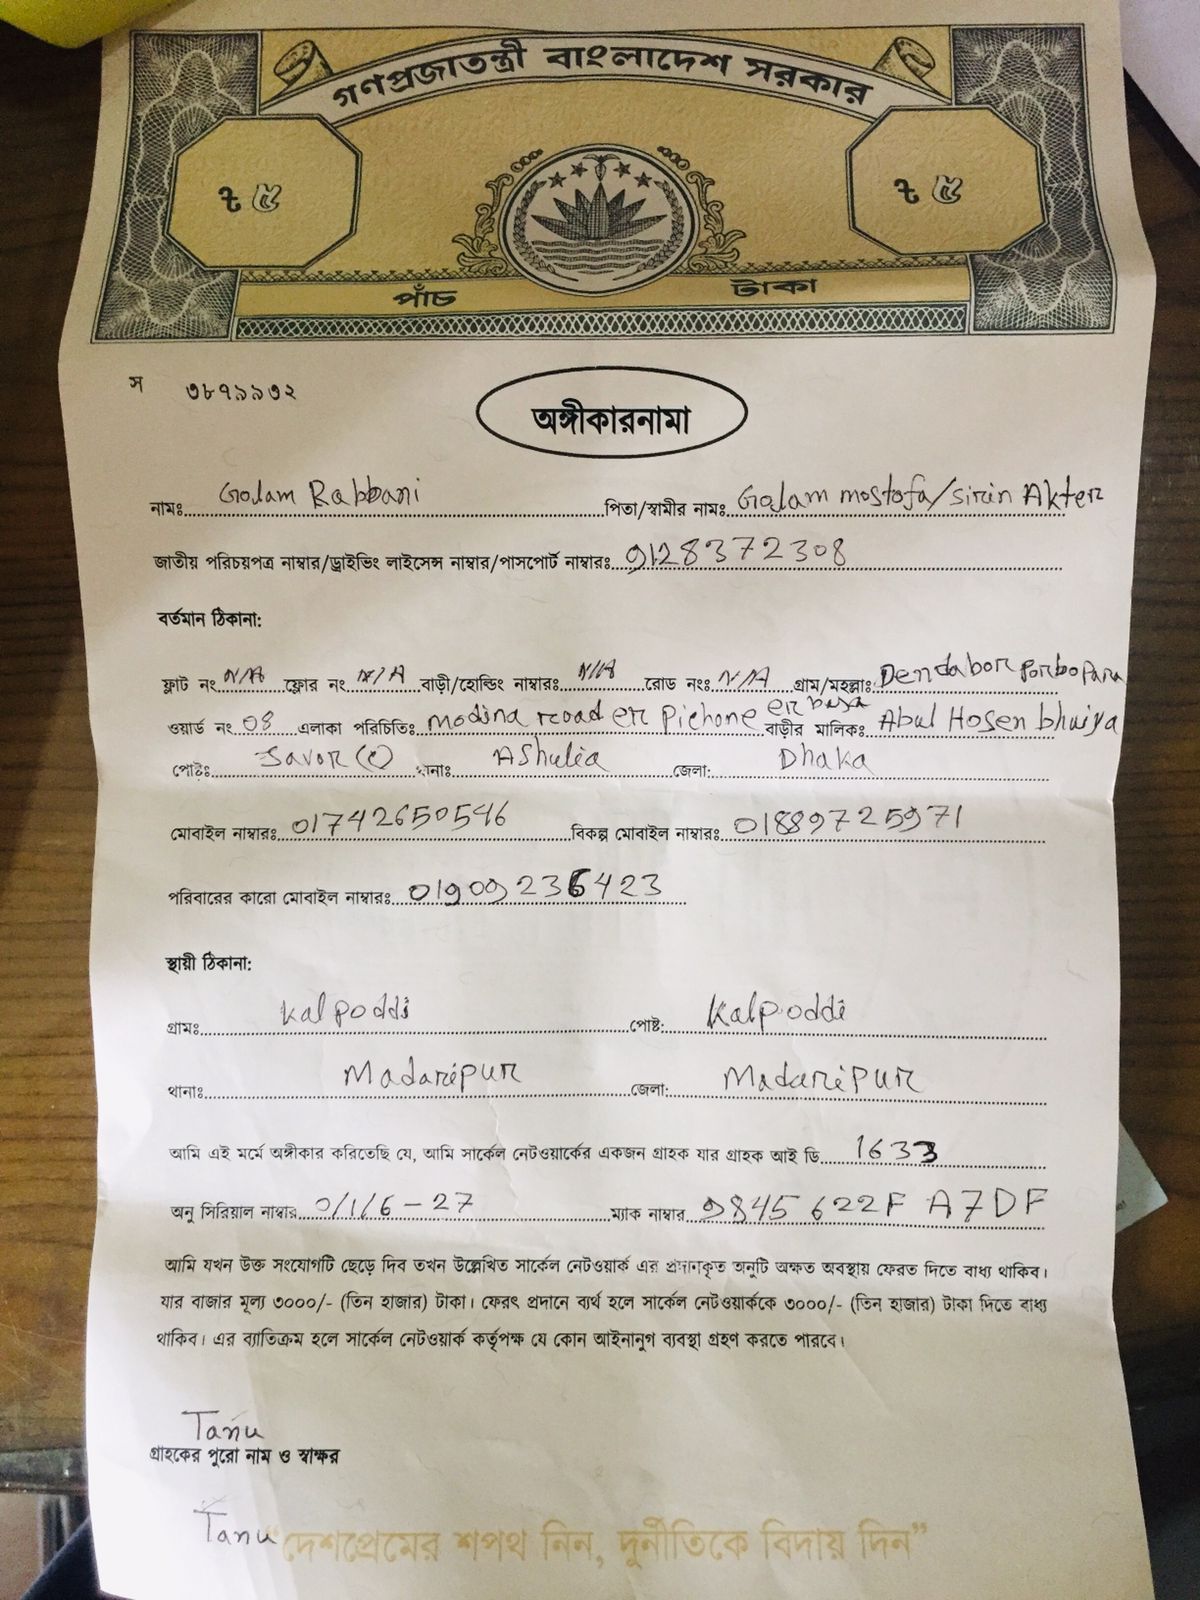 গণপ্রজাতন্ত্রী বাংলাদেশ সরকার
৳ ৫ ৳ ৫
পাঁচ টাকা
স ৩৮৭৯৯৩২
অঙ্গীকারনামা
নামঃ Golam Rabbani পিতা/স্বামীর নামঃ Golam mostofa/Sirin Akter
জাতীয় পরিচয়পত্র নাম্বার/ড্রাইভিং লাইসেন্স নাম্বার/পাসপোর্ট নাম্বারঃ 9128372308
বর্তমান ঠিকানা:
ফ্লাট নং N/A ফ্লোর নং N/A বাড়ী/হোল্ডিং নাম্বারঃ N/A রোড নংঃ N/A গ্রাম/মহল্লাঃ Dendabor Porbo Para
ওয়ার্ড নং 08 এলাকা পরিচিতিঃ Modina road er Pichone er basa বাড়ীর মালিকঃ Abul Hosen bhuiya
পোষ্টঃ Savor (c) থানাঃ AShulia জেলা: Dhaka
মোবাইল নাম্বারঃ 01742650546 বিকল্প মোবাইল নাম্বারঃ 01889725971
পরিবারের কারো মোবাইল নাম্বারঃ 01909236423
স্থায়ী ঠিকানা:
গ্রামঃ Kalpoddi পোষ্ট: Kalpoddi
থানাঃ Madaripur জেলা: Madaripur
আমি এই মর্মে অঙ্গীকার করিতেছি যে, আমি সার্কেল নেটওয়ার্কের একজন গ্রাহক যার গ্রাহক আই ডি 1633
অনু সিরিয়াল নাম্বার 0/1/6-27 ম্যাক নাম্বার 9845 622F A7DF
আমি যখন উক্ত সংযোগটি ছেড়ে দিব তখন উল্লেখিত সার্কেল নেটওয়ার্ক এর প্রদানকৃত অনুটি অক্ষত অবস্থায় ফেরত দিতে বাধ্য থাকিব।
যার বাজার মূল্য ৩০০০/- (তিন হাজার) টাকা। ফেরৎ প্রদানে ব্যর্থ হলে সার্কেল নেটওয়ার্ককে ৩০০০/- (তিন হাজার) টাকা দিতে বাধ্য
থাকিব। এর ব্যাতিক্রম হলে সার্কেল নেটওয়ার্ক কর্তৃপক্ষ যে কোন আইনানুগ ব্যবস্থা গ্রহণ করতে পারবে।
Tanu
গ্রাহকের পুরো নাম ও স্বাক্ষর
Tanu
“দেশপ্রেমের শপথ নিন, দুর্নীতিকে বিদায় দিন”